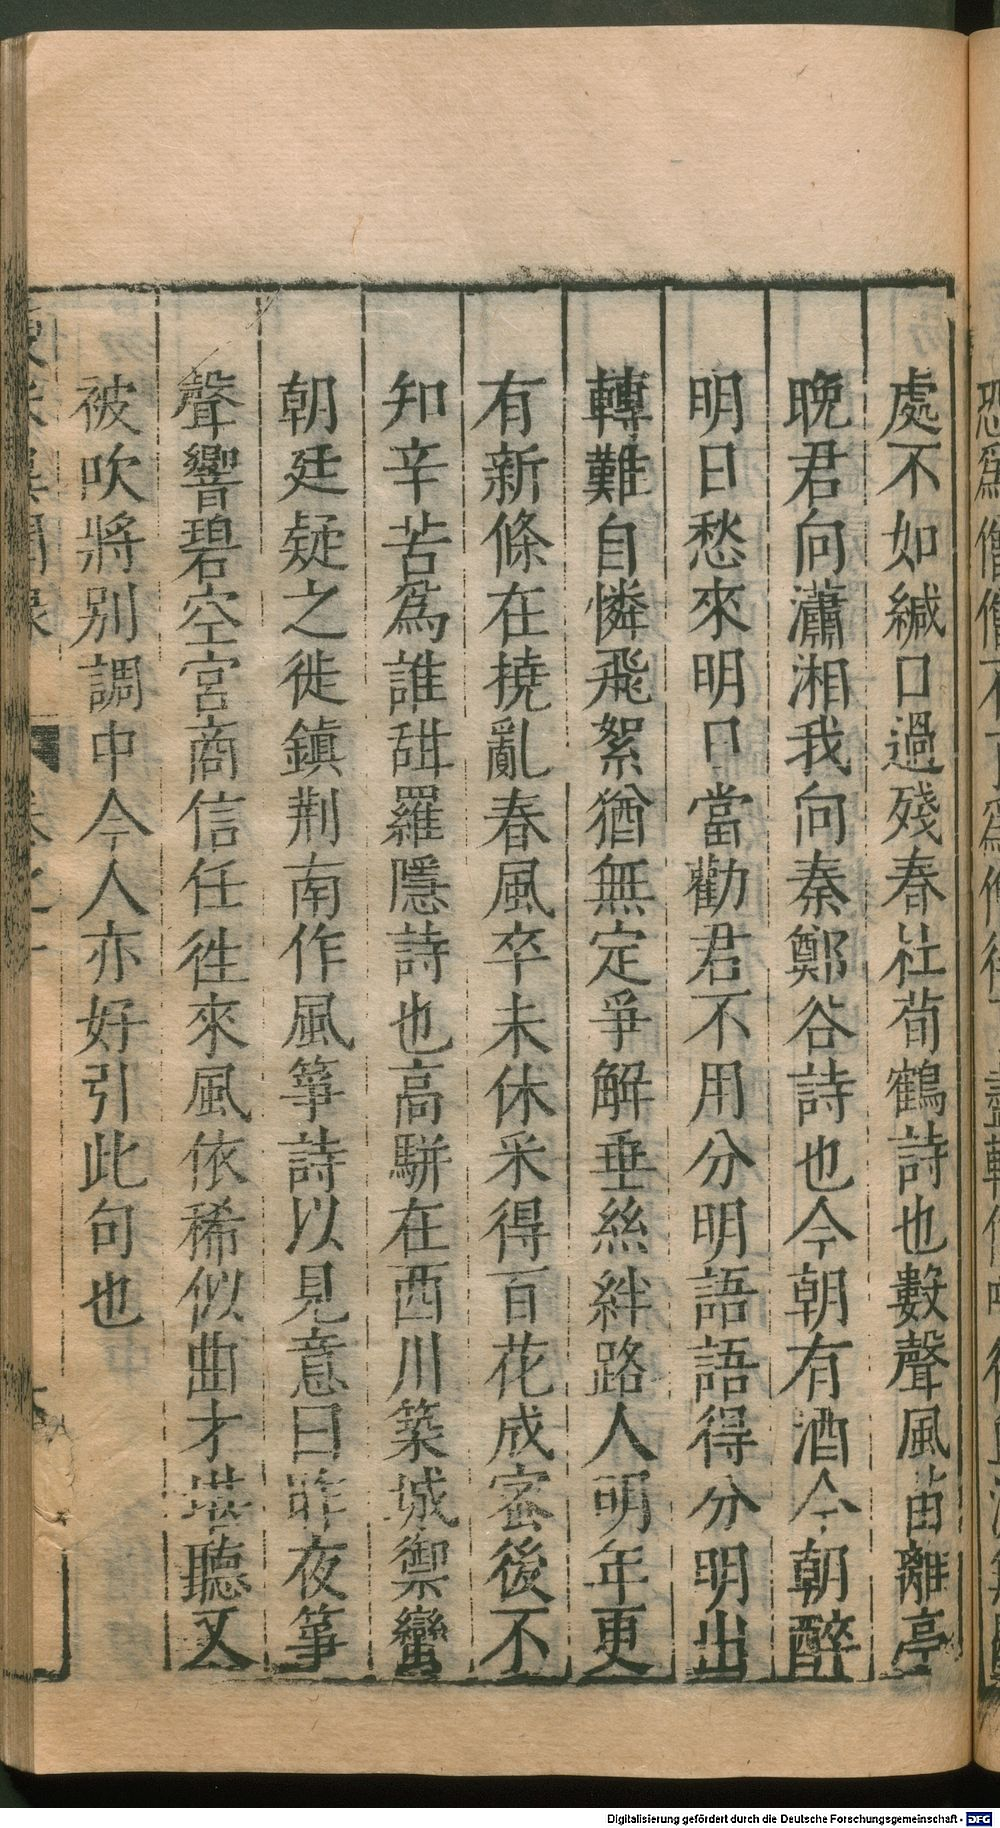 處不如緘口過殘春杜荀鶴詩也數聲風笛離亭
晚君向瀟湘我向秦鄭谷詩也今朝有酒今朝醉
明日愁來明日當勸君不用分明語語得分明出
轉難自憐飛絮猶無定爭解垂絲絆路人明年更
有新條在撓亂春風卒未休采得百花成蜜後不
知辛苦爲誰甜羅隱詩也高駢在西川築城禦蠻
朝廷疑之徙鎮荆南作風箏詩以見意曰昨夜箏
聲響碧空宮商信任徃來風依稀似曲才堪聽又
被吹將別調中今人亦好引此句也
Digitalisierung gefördert durch die Deutsche Forschungsgemeinschaft - DFG